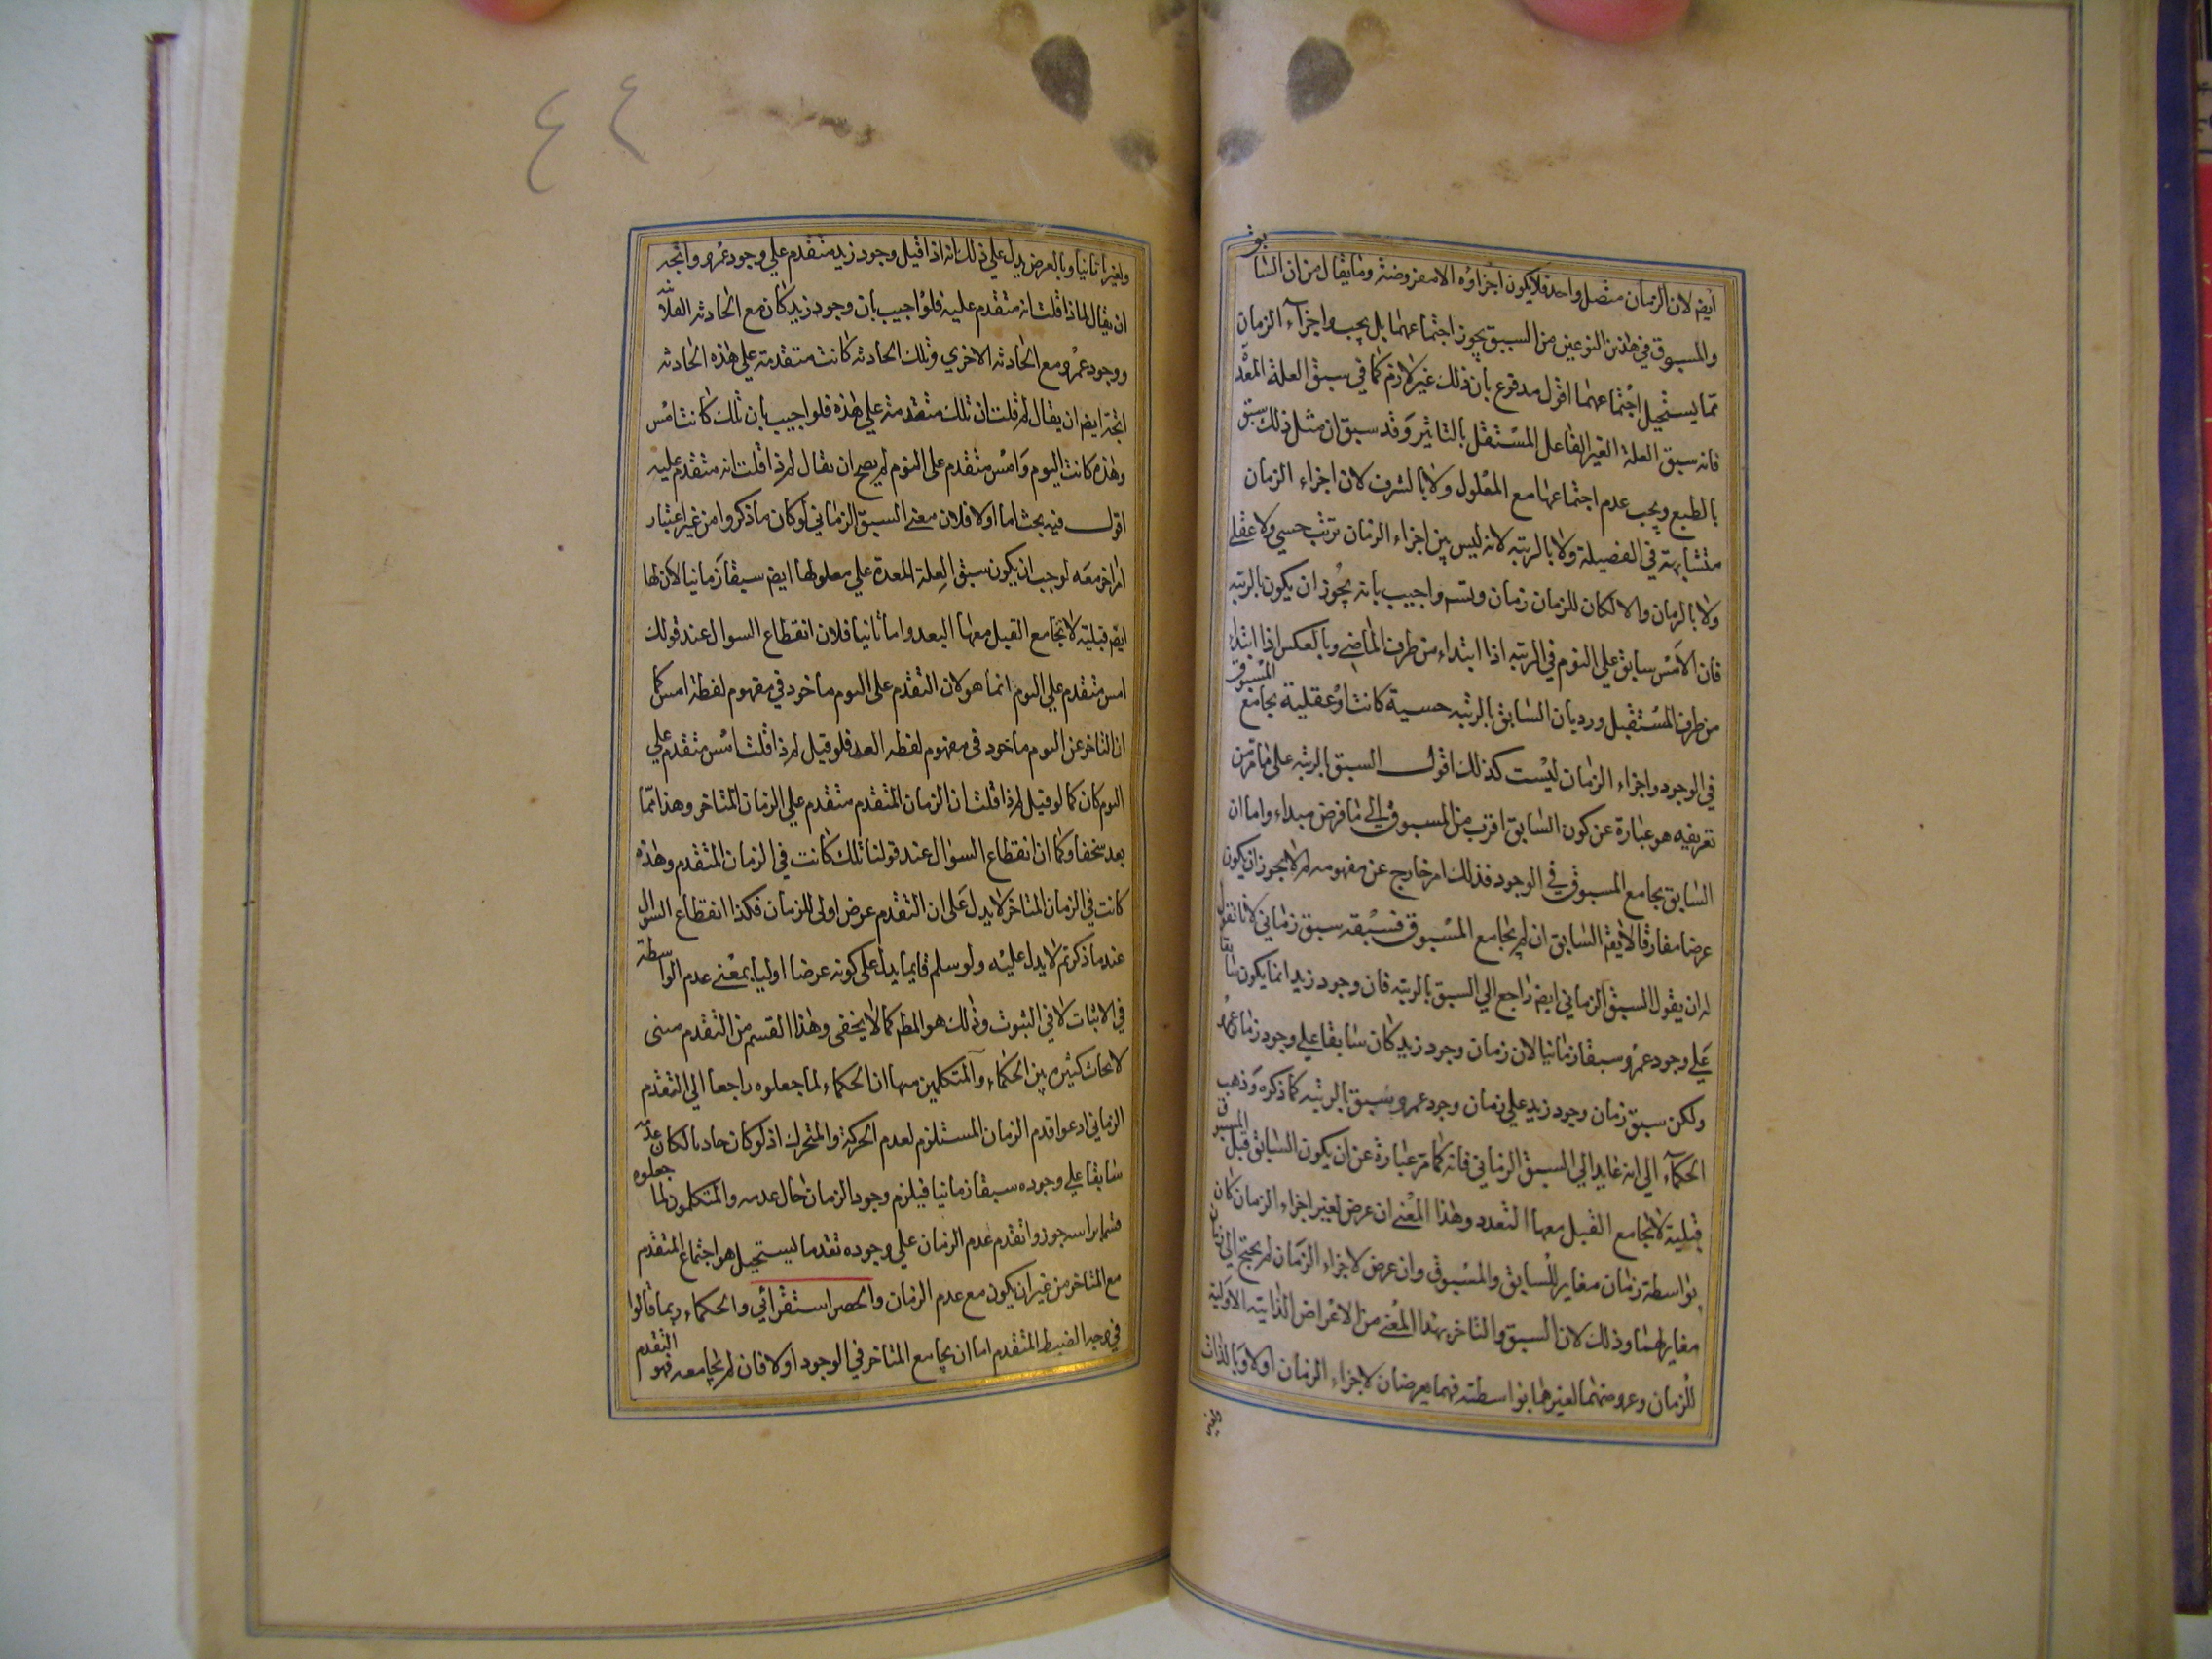 ايضا لان الزمان متصل واحد فلا يكون اجزاؤه الا مفروضة وما يقال من ان السابق
والمسبوق في هذين النوعين من السبق يجوز اجتماعهما بل يجب واجزآء الزمان
مما يستحيل اجتماعهما اقول مدفوع بان ذلك غير لازم كما في سبق العلة المعد
فانه سبق العلة الغير الفاعل المستقل بالتاثير وقد سبق ان مثل ذلك سبق
بالطبع ويجب عدم اجتماعها مع المعلول ولا بالشرف لان اجزاء الزمان
متشابهة في الفضيلة ولا بالرتبه لانه ليس بين اجزاء الزمان ترتب حسي ولا عقلي
ولا بالزمان والا لكان للزمان زمان وتسم واجيب بانه يجوز ان يكون بالرتبه
فان الامس سابق على اليوم في الرتبه اذا ابتداء من طرف الماضي وبالعكس اذا ابتداء
من طرف المستقبل ورد بان السابق بالرتبه حسية كانت او عقلية يجامع المسبوق
في الوجود واجزاء الزمان ليست كذلك اقول السبق بالرتبه على ما مر من
تعريفه هو عبارة عن كون السابق اقرب من المسبوق الى ما فرض مبداء واما ان
السابق يجامع المسبوق في الوجود فذلك امر خارج عن مفهومه لم لا يجوز ان يكون
عرضا مفارقا لا يقم السابق ان لم يجامع المسبوق فسبقه سبق زماني لانا نقول
له ان يقول السبق الزماني ايضا راجع الي السبق بالرتبه فان وجود زيد انما يكون سابقا
علي وجود عمرو سبقا زمانيا لان زمان وجود زيد كان سابقا علي وجود زمان عمرو
ولكن سبق زمان وجود زيد علي زمان وجود عمرو سبق بالرتبه كما ذكره وذهب
الحكمآء الي انه عايد الي السبق الزماني فانه كما مر عبارة عن ان يكون السابق قبل المسبوق
قبلية لا يجامع القبل معها التعدد وهذا المعني ان عرض لغير اجزاء الزمان كان
بواسطة زمان مغاير للسابق والمسبوق وان عرض لاجزاء الزمان لم يحتج الي زمان
مغاير لهما وذلك لان السبق والتاخر بهذا المعني من الاعراض الذاتيه الاولية
للزمان وعروضهما لغيرها بواسطته فهما يعرضان لاجزاء الزمان اولا وبالذات
ولغير
٤٤
ولغيرها ثانيا وبالعرض يدل علي ذلك انه اذا قيل وجود زيد متقدم علي وجود عمرو واتجه
ان يقال لماذا قلت انه متقدم عليه فلو اجيب بان وجود زيد كان مع الحادثه الفلانيه
ووجود عمرو مع الحادثه الاخري وتلك الحادثه كانت متقدمة علي هذه الحادثه
اتجه ايضا ان يقال لم قلت ان تلك متقدمة علي هذه فلو اجيب بان تلك كانت امس
وهذه كانت اليوم وامس متقدم على اليوم لم يصح ان يقال لم ذا قلت انه متقدم عليه
اقول فيه بحث اما اولا فلان معنى السبق الزماني لو كان ما ذكروا من غير اعتبار
امر اخر معه لوجب ان يكون سبق العلة المعدة علي معلولها ايضا سبقا زمانيا لان لها
ايضا قبلية لا يجامع القبل معها البعد واما ثانيا فلان انقطاع السوال عند قولك
امس متقدم علي اليوم انما هو لان التقدم على اليوم ماخوذ في مفهوم لفظة امس كما
ان التاخر عن اليوم ماخوذ في مفهوم لفظه الغد فلو قيل لم ذا قلت امس متقدم علي
اليوم كان كما لو قيل لم ذا قلت ان الزمان المتقدم متقدم علي الزمان المتاخر وهذا مما
يعد سخفا وكما ان انقطاع السؤال عند قولنا تلك كانت في الزمان المتقدم وهذه
كانت في الزمان المتاخر لا يدل على ان التقدم عرض اولى للزمان فكذا انقطاع السؤال
عند ما ذكرتم لا يدل عليه ولو سلم فانما يدل على كونه عرضا اوليا بمعنى عدم الواسطة
في الاثبات لا في الثبوت وذلك هو المط كما لا يخفى وهذا القسم من التقدم مبنى
لابحاث كثيره بين الحكماء والمتكلمين منها ان الحكماء لما جعلوه راجعا الي التقدم
الزماني ادعوا قدم الزمان المستلزم لعدم الحركة والمتحرك اذ لو كان حادثا لكان عدمه
سابقا علي وجوده سبقا زمانيا فيلزم وجود الزمان حال عدمه والمتكلمون لما جعلوه
قسما براسه جوزوا تقدم عدم الزمان علي وجوده تقدما يستحيل هو اجتماع المتقدم
مع المتاخر من غير ان يكون مع عدم الزمان والحصر استقرائي والحكماء ربما قالوا
في وجه الضبط المتقدم اما ان يجامع المتاخر في الوجود اولا فان لم يجامعه فهو التقدم